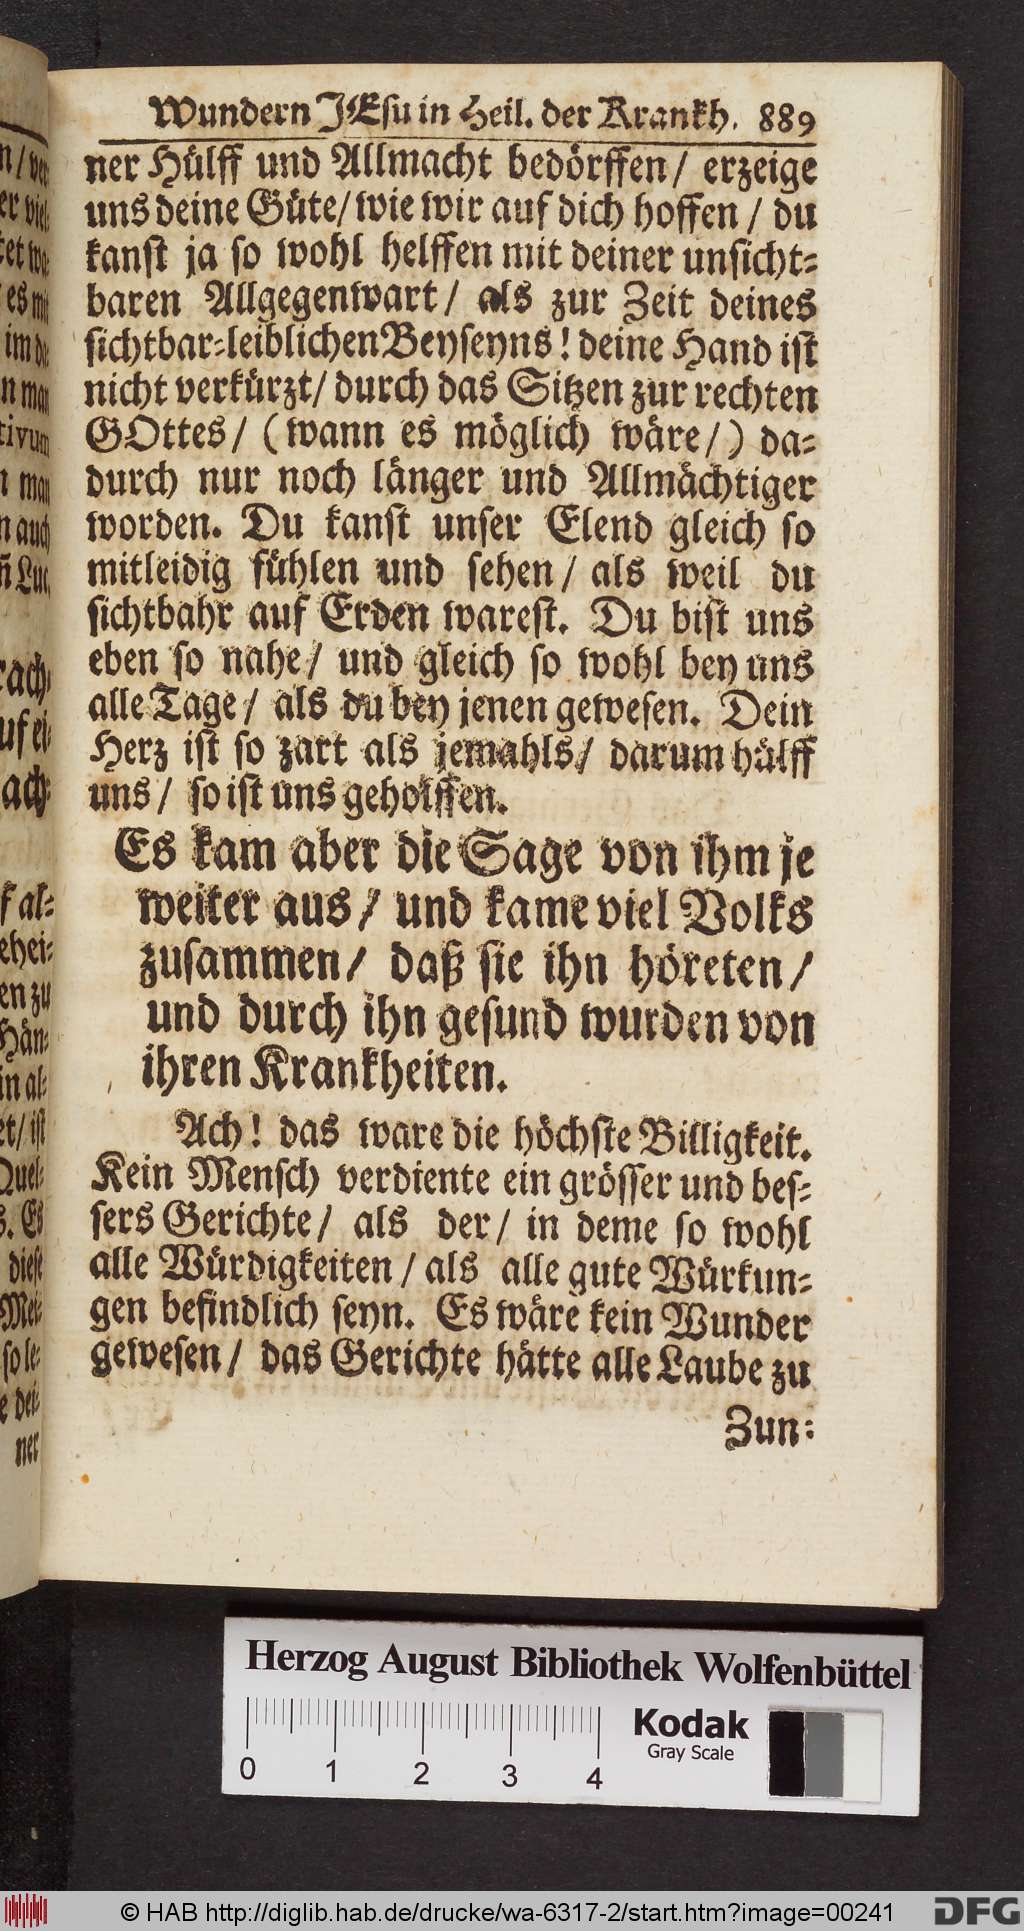 Wundern JEsu in Heil. der Krankh. 889
ner Hülff und Allmacht bedörffen / erzeige
uns deine Güte / wie wir auf dich hoffen / du
kanst ja so wohl helffen mit deiner unsicht⸗
baren Allgegenwart / als zur Zeit deines
sichtbar⸗leiblichen Beyseyns ! deine Hand ist
nicht verkürzt / durch das Sitzen zur rechten
GOttes / ( wann es möglich wäre / ) da⸗
durch nur noch länger und Allmächtiger
worden. Du kanst unser Elend gleich so
mitleidig fühlen und sehen / als weil du
sichtbahr auf Erden warest. Du bist uns
eben so nahe / und gleich so wohl bey uns
alle Tage / als du bey jenen gewesen. Dein
Herz ist so zart als jemahls / darum hülff
uns / so ist uns geholffen.
Es kam aber die Sage von ihm je
weiter aus / und kame viel Volks
zusammen / daß sie ihn höreten /
und durch ihn gesund wurden von
ihren Krankheiten.
Ach ! das ware die höchste Billigkeit.
Kein Mensch verdiente ein grösser und bes⸗
sers Gerichte / als der / in deme so wohl
alle Würdigkeiten / als alle gute Würkun⸗
gen befindlich seyn. Es wäre kein Wunder
gewesen / das Gerichte hätte alle Laube zu
Zun⸗
Herzog August Bibliothek Wolfenbüttel
Kodak
Gray Scale
0 1 2 3 4
© HAB http://diglib.hab.de/drucke/wa-6317-2/start.htm?image=00241
DFG